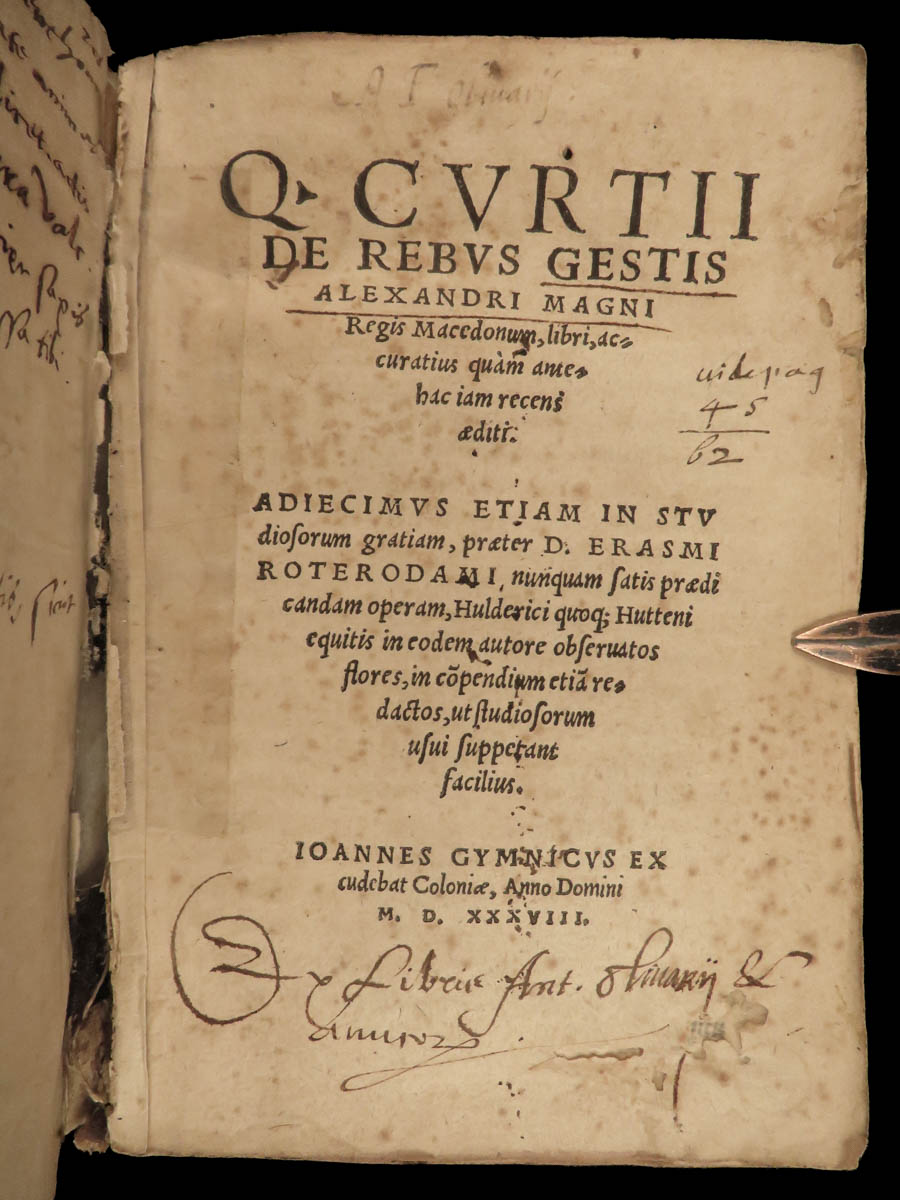 Q. CVRTII
DE REBVS GESTIS
ALEXANDRI MAGNI
Regis Macedonum, libri, ac-
curatius quàm ante-
hac iam recens
æditi.
uide pag
45
62
ADIECIMVS ETIAM IN STV
dioſorum gratiam, præter D. ERASMI
ROTERODAMI, nunquam ſatis prædi
candam operam, Hulderici quoq; Hutteni
equitis in eodem autore obſeruatos
flores, in cõpendium etiã re-
dactos, ut ſtudioſorum
uſui ſuppetant
facilius.
IOANNES GYMNICVS EX
cudebat Coloniæ, Anno Domini
M. D. XXXVIII.
Ex Libris Ant. Oliuarij &
amicor